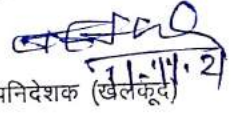 11.11.2
पनिदेशक (खेलकूद)